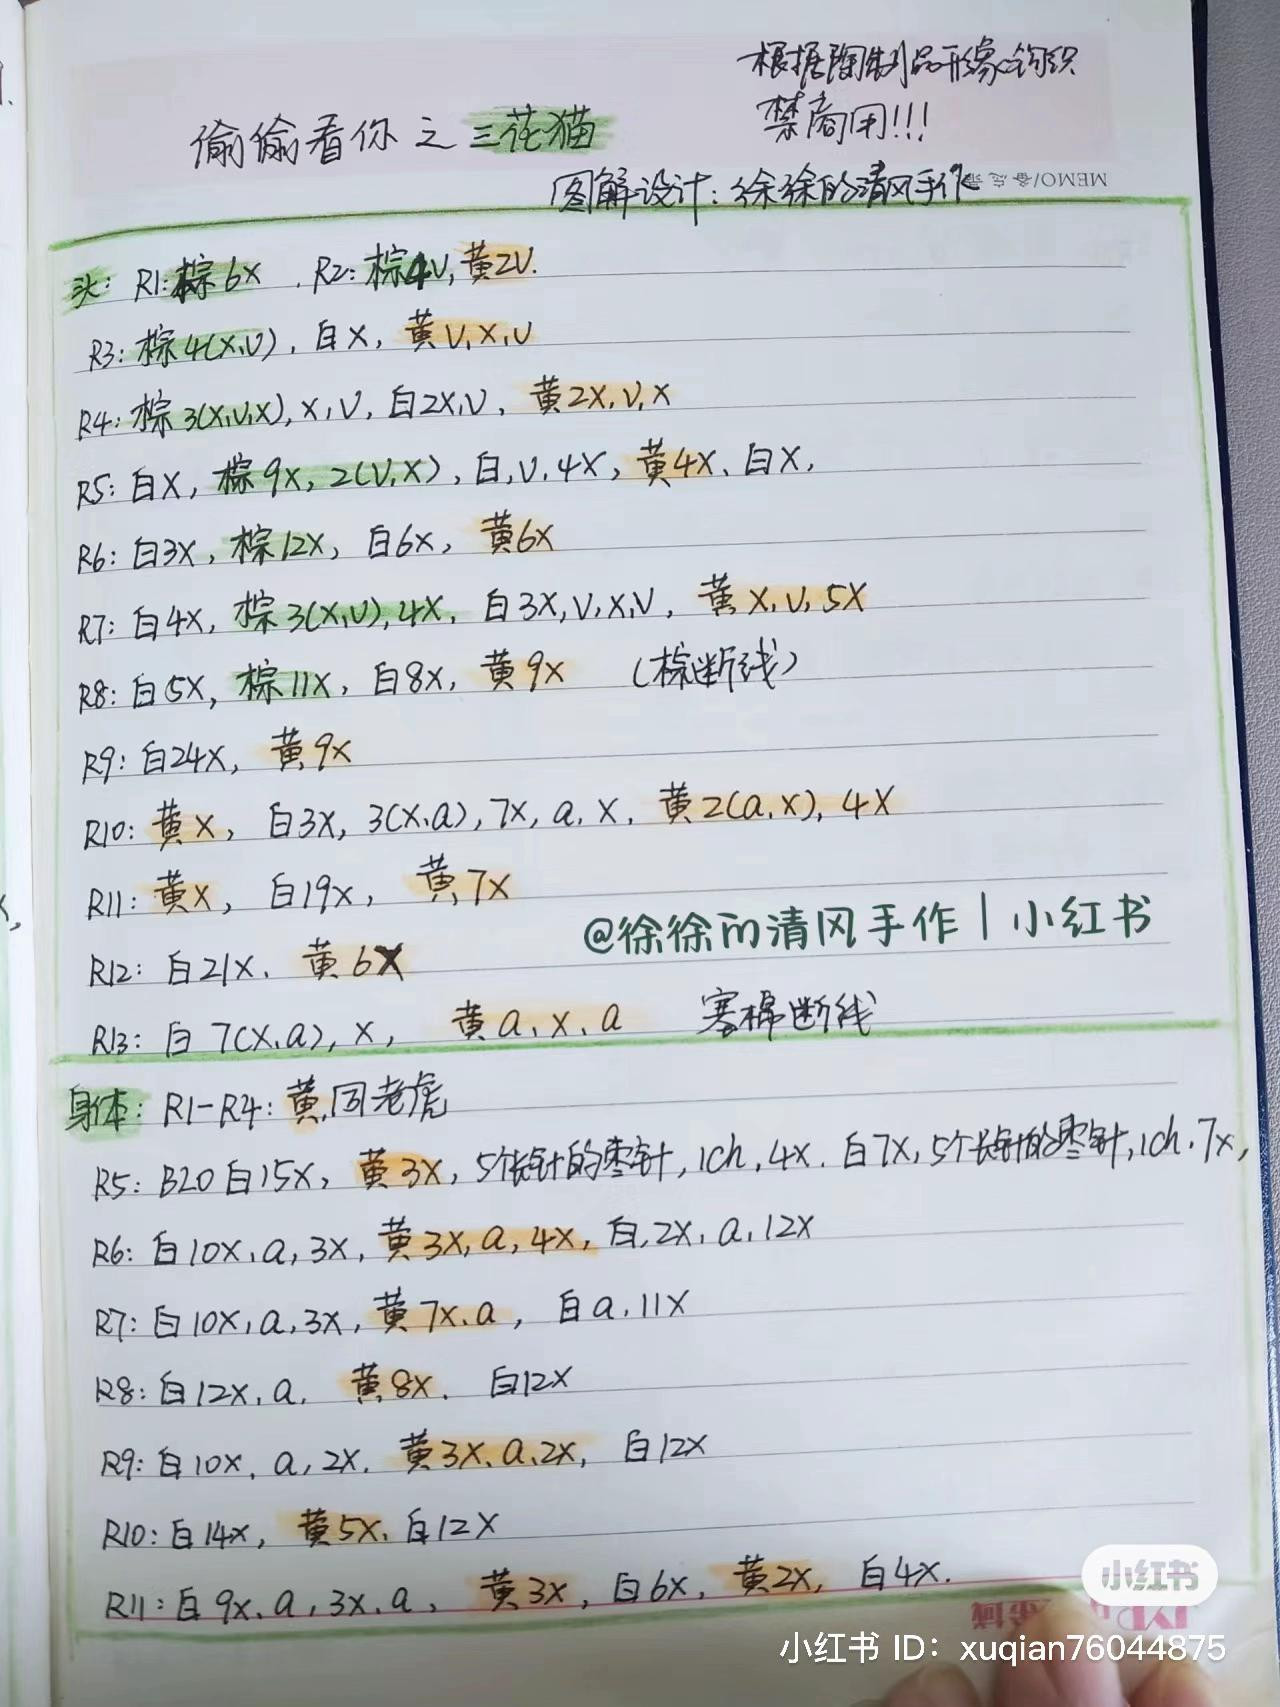 根据陶制品形象钩织
禁商用!!!
偷偷看你之三花猫
图解设计：徐徐的清风手作
MEMO/备忘录
头：R1：棕6X，R2：棕4V，黄2V.
R3：棕4(X,V)，白X，黄V,X,V
R4：棕3(X,V,X),X,V，白2X,V，黄2X,V,X
R5：白X，棕9X，2(V,X)，白,V,4X，黄4X、白X，
R6：白3X，棕12X，白6X，黄6X
R7：白4X，棕3(X,V),4X，白3X,V,X,V，黄X,V,5X
R8：白5X，棕11X，白8X，黄9X （棕断线）
R9：白24X，黄9X
R10：黄X，白3X，3(X,a),7X,a,X，黄2(a,X),4X
R11：黄X，白19X，黄7X
@徐徐的清风手作 | 小红书
R12：白21X、黄6X
R13：白7(X,a),X，黄a,X,a 塞棉断线
身体：R1-R4：黄,同老虎
R5：B20白15X，黄3X，5个长针的枣针，1ch，4X．白7X，5个长针的枣针，1ch，7X，
R6：白10X,a,3X，黄3X,a,4X，白,2X,a,12X
R7：白10X,a,3X，黄7X,a，白a,11X
R8：白12X,a，黄8X、白12X
R9：白10X,a,2X，黄3X,a,2X，白12X
R10：白14X，黄5X、白12X
R11：白9X,a,3X,a，黄3X，白6X，黄2X，白4X.
小红书
小红书 ID：xuqian76044875